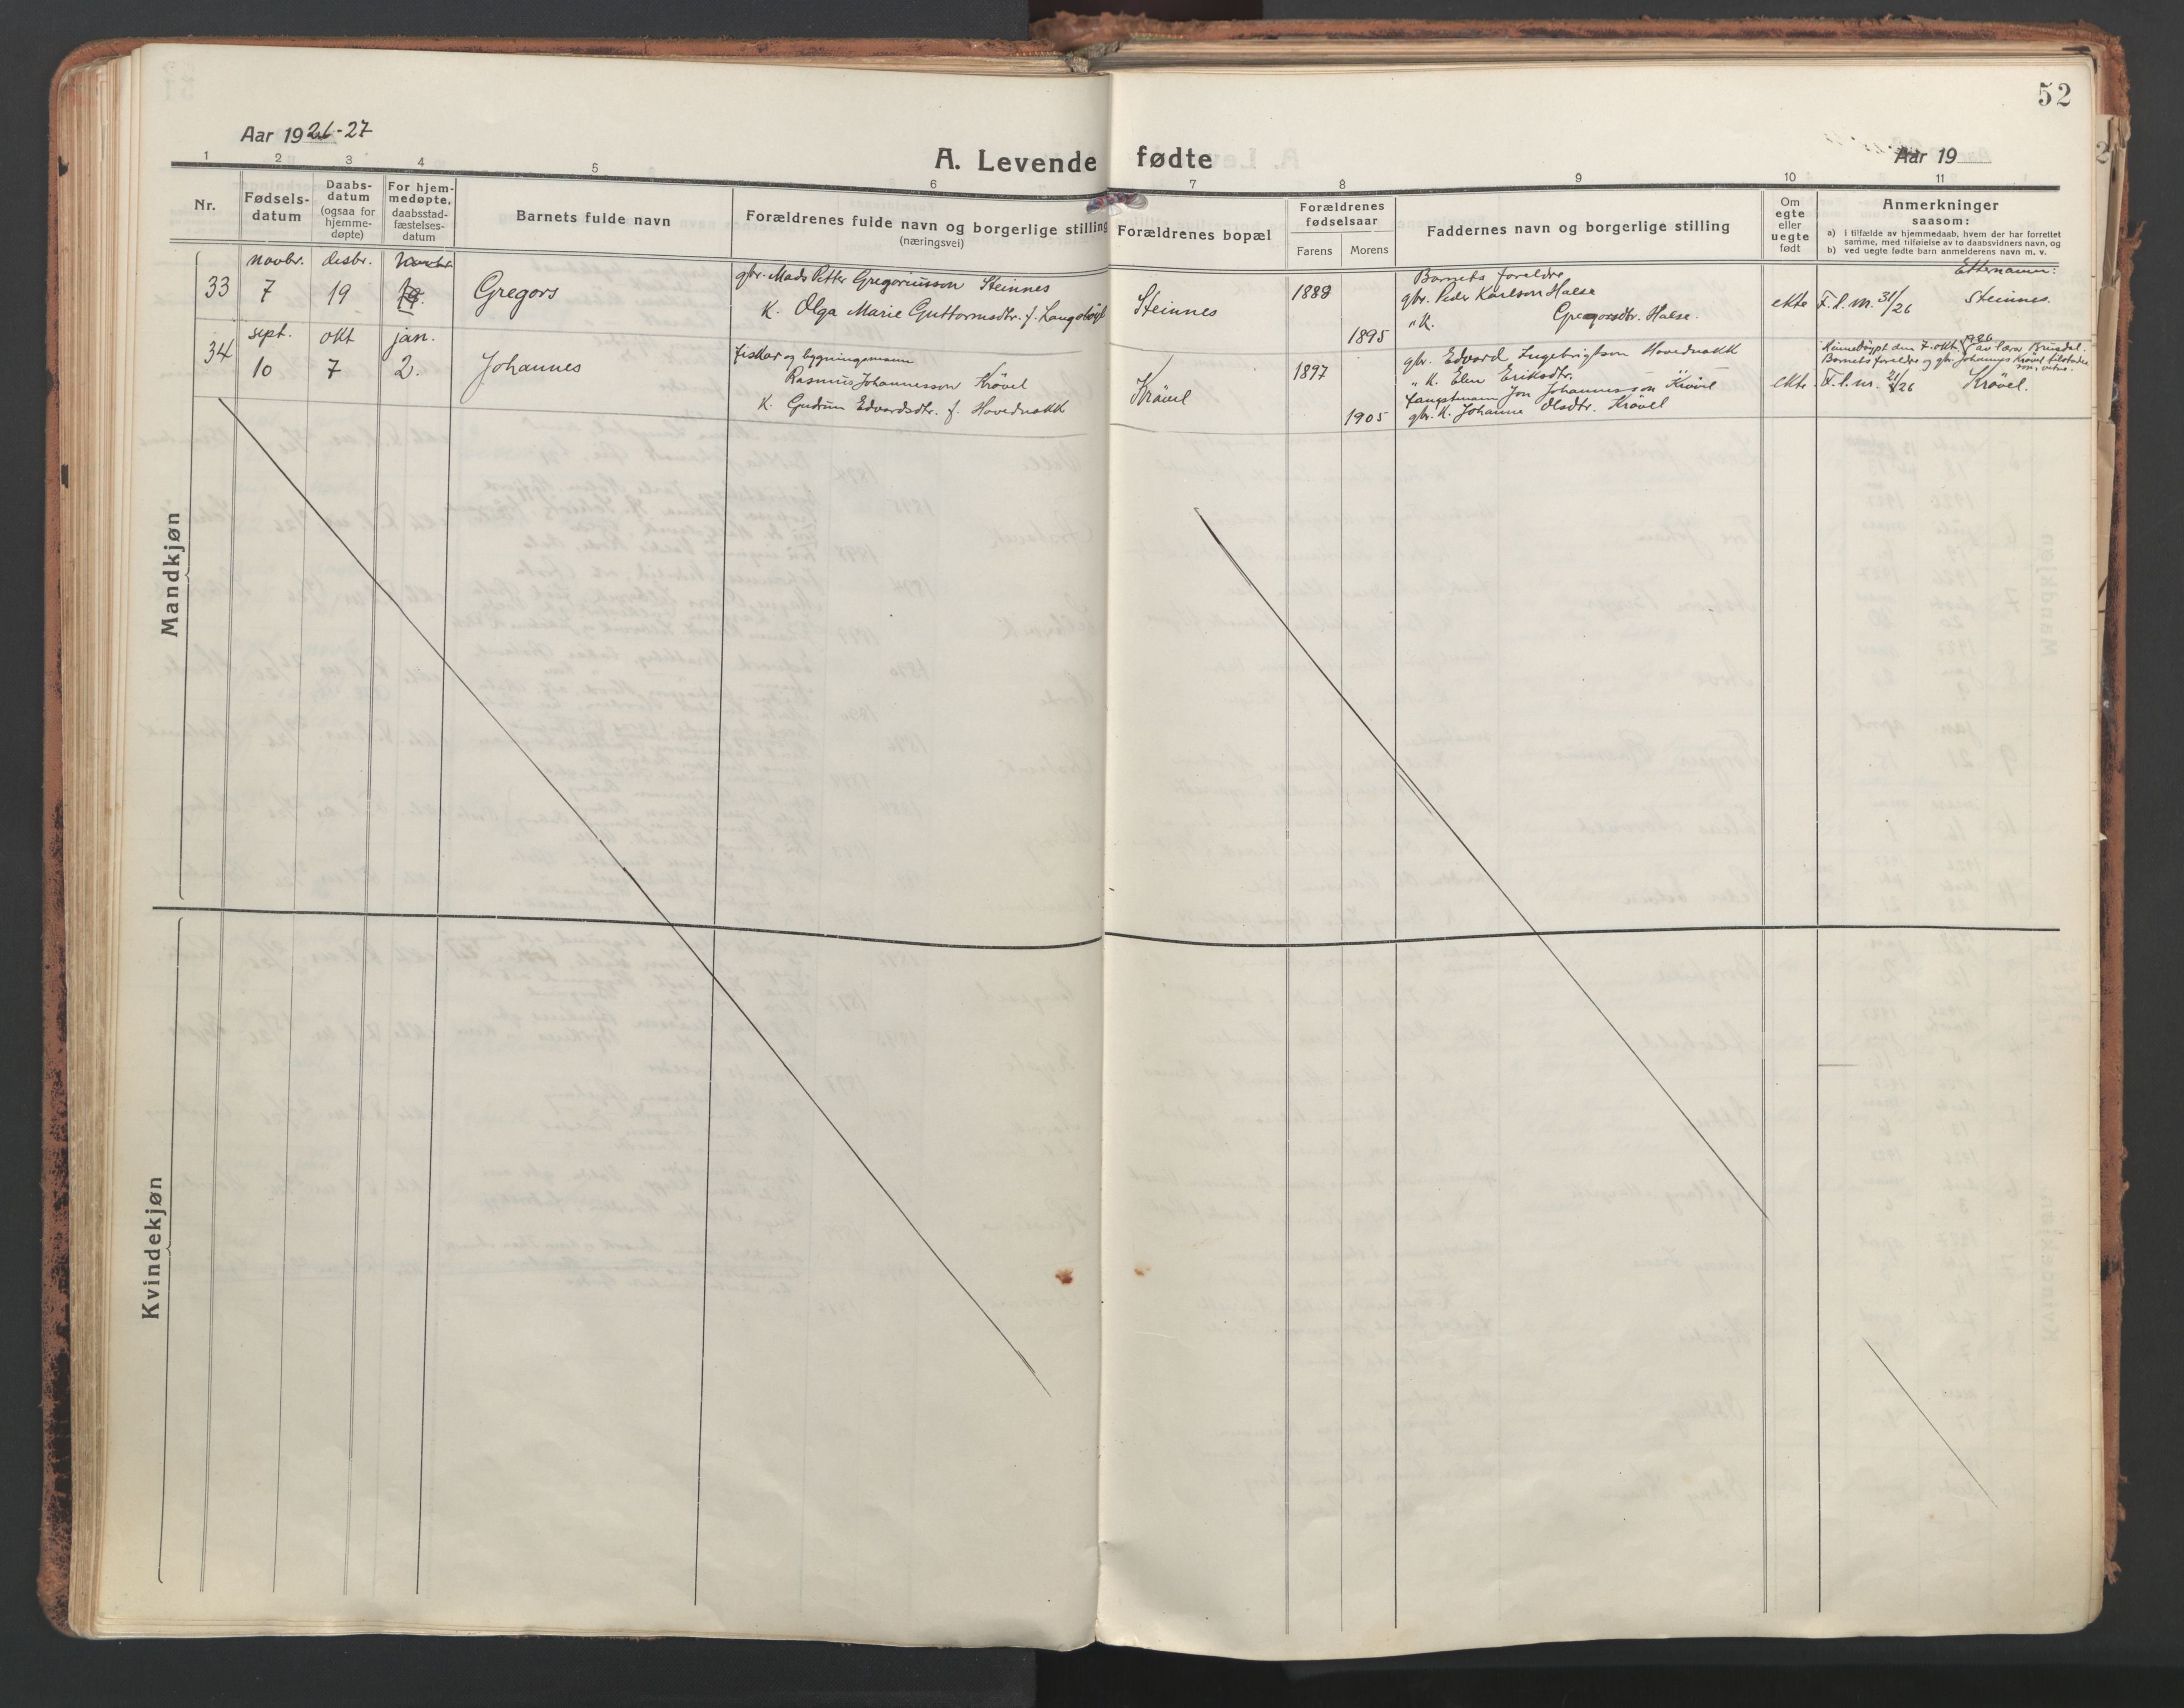 52
Aar 1926-27
A. Levende fødte
Aar 19
1 2 3 4 5 6 7 8 9 10 11
Nr.
Fødsels-
datum
Daabs-
datum
(ogsaa for
hjemme-
døpte)
For hjem-
medøpte,
daabsstad-
fæstelses-
datum
Barnets fulde navn
Forældrenes fulde navn og borgerlige stilling
(næringsvei)
Forældrenes bopæl
Forældrenes
fødselsaar
Farens Morens
Faddernes navn og borgerlige stilling
Om
egte
eller
uegte
født
Anmerkninger
saasom:
a) i tilfælde av hjemmedaab, hvem der har forrettet
samme, med tilføielse av to daabsvidners navn, og
b) ved uegte født barn anmelderens navn m. v.
Mandkjøn
novbr. desbr. Novbr.
33 7 19
Gregors
gbr. Mads Petter Gregoriusson Steinnes
K. Olga Marie Guttormsdtr. f. Langebøgl
Steinnes
1888
1895
Barnets foreldre
gbr. Peder Karlson Halse
" K. Gregorsdtr. Halse.
ekte
F. l. m. 31/26
Etternamn:
Steinnes.
sept. okt jan.
34 10 7 2.
Johannes
fiskar og bygningsmann
Rasmus Johannesson Krövel
K. Gudrun Edvardsdtr. f. Hovednakk
Krövel
1897
1905
gbr. Edvard Ingebrigtson Hovednakk
" K. Elen Eriksdtr.
fangstmann Jon Johannesson Krövel
gbr. K. Johanne Olsdtr. Krövel
ekte
Heimedöypt den 7. okt. 1926 av lærar Brusdal.
Barnets foreldre og gbr. Johannes Krövel tilstades
som vitne.
F. l. nr. 21/26 Krövel.
Kvindekjøn